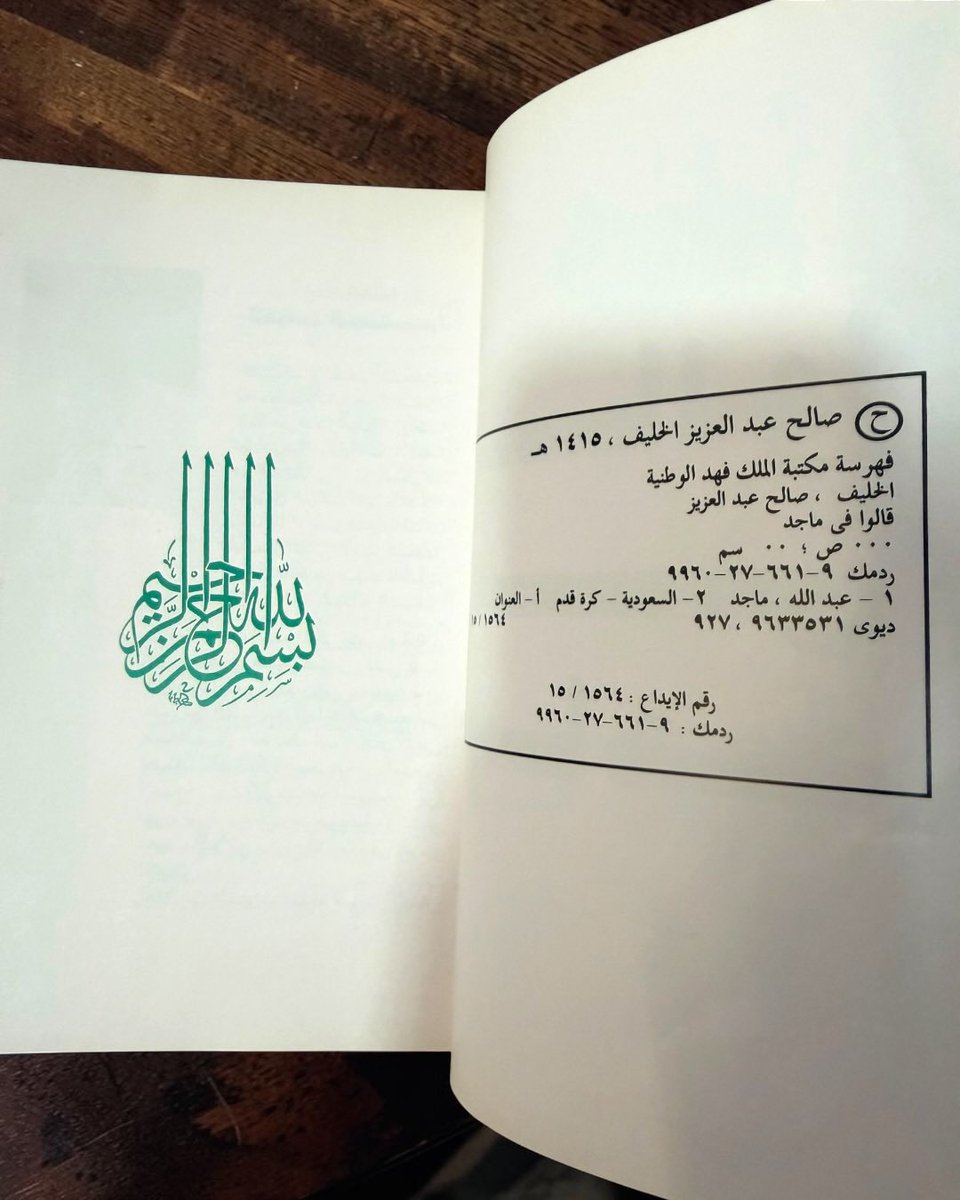 ح صالح عبد العزيز الخليف ، ١٤١٥ هـ
فهرسة مكتبة الملك فهد الوطنية
الخليف ، صالح عبد العزيز
قالوا فى ماجد
٠٠٠ ص ؛ ٠٠ سم
ردمك ٩-٦٦١-٢٧-٩٩٦٠
١ - عبد الله ، ماجد ٢- السعودية - كرة قدم أ- العنوان
ديوى ٩٢٧ ، ٩٦٣٣٥٣١ ١٥/١٥٦٤
رقم الإيداع : ١٥٦٤ / ١٥
ردمك : ٩-٦٦١-٢٧-٩٩٦٠
بسم الله الرحمن الرحيم